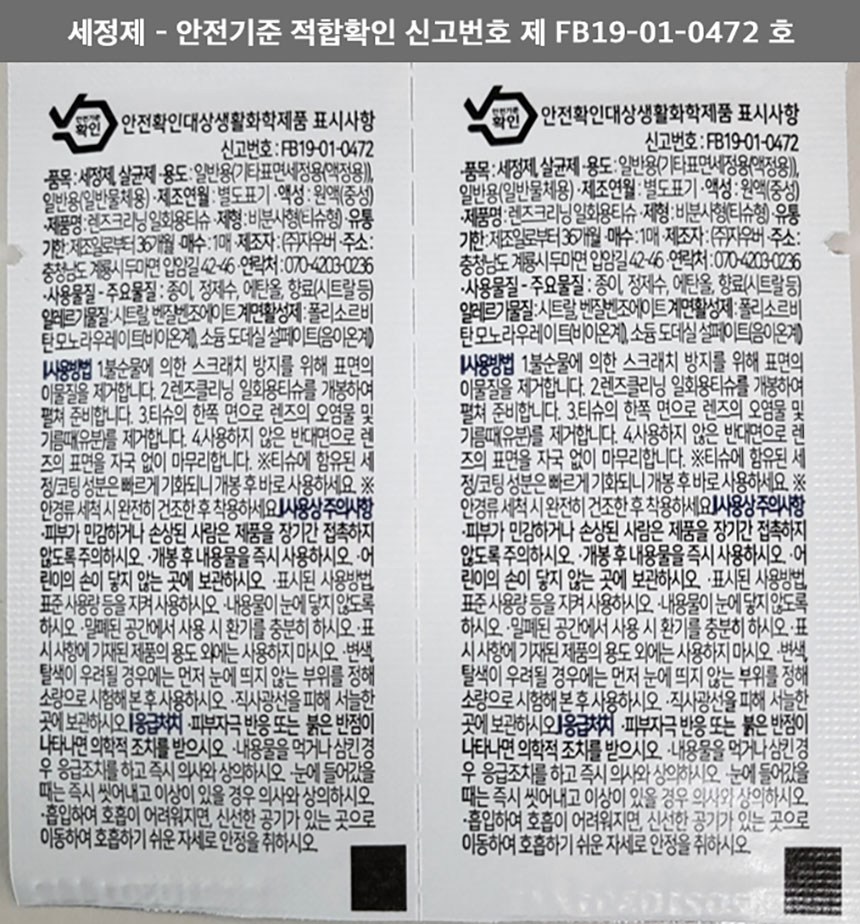 세정제 - 안전기준 적합확인 신고번호 제 FB19-01-0472 호
안전기준
확인
안전확인대상생활화학제품 표시사항
신고번호 : FB19-01-0472
·품목 : 세정제, 살균제 ·용도 : 일반용(기타표면세정용(액정용)),
일반용(일반물체용) ·제조연월 : 별도표기 ·액성 : 원액(중성)
·제품명 : 렌즈크리닝 일회용티슈 ·제형 : 비분사형(티슈형) ·유통
기한 : 제조일로부터 36개월 ·매수 : 1매 ·제조자 : (주)자우버 ·주소 :
충청남도 계룡시 두마면 입암길 42-46 ·연락처 : 070-4203-0236
·사용물질 - 주요물질 : 종이, 정제수, 에탄올, 향료(시트랄 등)
알레르기물질 : 시트랄, 벤질벤조에이트 계면활성제 : 폴리소르비
탄 모노라우레이트(비이온계), 소듐 도데실 설페이트(음이온계)
사용방법 1.불순물에 의한 스크래치 방지를 위해 표면의
이물질을 제거합니다. 2.렌즈클리닝 일회용티슈를 개봉하여
펼쳐 준비합니다. 3.티슈의 한쪽 면으로 렌즈의 오염물 및
기름때(유분)를 제거합니다. 4.사용하지 않은 반대면으로 렌
즈의 표면을 자국 없이 마무리합니다. ※티슈에 함유된 세
정/코팅 성분은 빠르게 기화되니 개봉 후 바로 사용하세요. ※
안경류 세척 시 완전히 건조한 후 착용하세요. 사용상 주의사항
·피부가 민감하거나 손상된 사람은 제품을 장기간 접촉하지
않도록 주의하시오. ·개봉 후 내용물을 즉시 사용하시오. ·어
린이의 손이 닿지 않는 곳에 보관하시오. ·표시된 사용방법,
표준 사용량 등을 지켜 사용하시오. ·내용물이 눈에 닿지 않도록
하시오. ·밀폐된 공간에서 사용 시 환기를 충분히 하시오. ·표
시 사항에 기재된 제품의 용도 외에는 사용하지 마시오. ·변색,
탈색이 우려될 경우에는 먼저 눈에 띄지 않는 부위를 정해
소량으로 시험해 본 후 사용하시오. ·직사광선을 피해 서늘한
곳에 보관하시오. 응급처치 ·피부자극 반응 또는 붉은 반점이
나타나면 의학적 조치를 받으시오. ·내용물을 먹거나 삼킨 경
우 응급조치를 하고 즉시 의사와 상의하시오. ·눈에 들어갔을
때는 즉시 씻어내고 이상이 있을 경우 의사와 상의하시오.
·흡입하여 호흡이 어려워지면, 신선한 공기가 있는 곳으로
이동하여 호흡하기 쉬운 자세로 안정을 취하시오.
안전기준
확인
안전확인대상생활화학제품 표시사항
신고번호 : FB19-01-0472
·품목 : 세정제, 살균제 ·용도 : 일반용(기타표면세정용(액정용)),
일반용(일반물체용) ·제조연월 : 별도표기 ·액성 : 원액(중성)
·제품명 : 렌즈크리닝 일회용티슈 ·제형 : 비분사형(티슈형) ·유통
기한 : 제조일로부터 36개월 ·매수 : 1매 ·제조자 : (주)자우버 ·주소 :
충청남도 계룡시 두마면 입암길 42-46 ·연락처 : 070-4203-0236
·사용물질 - 주요물질 : 종이, 정제수, 에탄올, 향료(시트랄 등)
알레르기물질 : 시트랄, 벤질벤조에이트 계면활성제 : 폴리소르비
탄 모노라우레이트(비이온계), 소듐 도데실 설페이트(음이온계)
사용방법 1.불순물에 의한 스크래치 방지를 위해 표면의
이물질을 제거합니다. 2.렌즈클리닝 일회용티슈를 개봉하여
펼쳐 준비합니다. 3.티슈의 한쪽 면으로 렌즈의 오염물 및
기름때(유분)를 제거합니다. 4.사용하지 않은 반대면으로 렌
즈의 표면을 자국 없이 마무리합니다. ※티슈에 함유된 세
정/코팅 성분은 빠르게 기화되니 개봉 후 바로 사용하세요. ※
안경류 세척 시 완전히 건조한 후 착용하세요. 사용상 주의사항
·피부가 민감하거나 손상된 사람은 제품을 장기간 접촉하지
않도록 주의하시오. ·개봉 후 내용물을 즉시 사용하시오. ·어
린이의 손이 닿지 않는 곳에 보관하시오. ·표시된 사용방법,
표준 사용량 등을 지켜 사용하시오. ·내용물이 눈에 닿지 않도록
하시오. ·밀폐된 공간에서 사용 시 환기를 충분히 하시오. ·표
시 사항에 기재된 제품의 용도 외에는 사용하지 마시오. ·변색,
탈색이 우려될 경우에는 먼저 눈에 띄지 않는 부위를 정해
소량으로 시험해 본 후 사용하시오. ·직사광선을 피해 서늘한
곳에 보관하시오. 응급처치 ·피부자극 반응 또는 붉은 반점이
나타나면 의학적 조치를 받으시오. ·내용물을 먹거나 삼킨 경
우 응급조치를 하고 즉시 의사와 상의하시오. ·눈에 들어갔을
때는 즉시 씻어내고 이상이 있을 경우 의사와 상의하시오.
·흡입하여 호흡이 어려워지면, 신선한 공기가 있는 곳으로
이동하여 호흡하기 쉬운 자세로 안정을 취하시오.